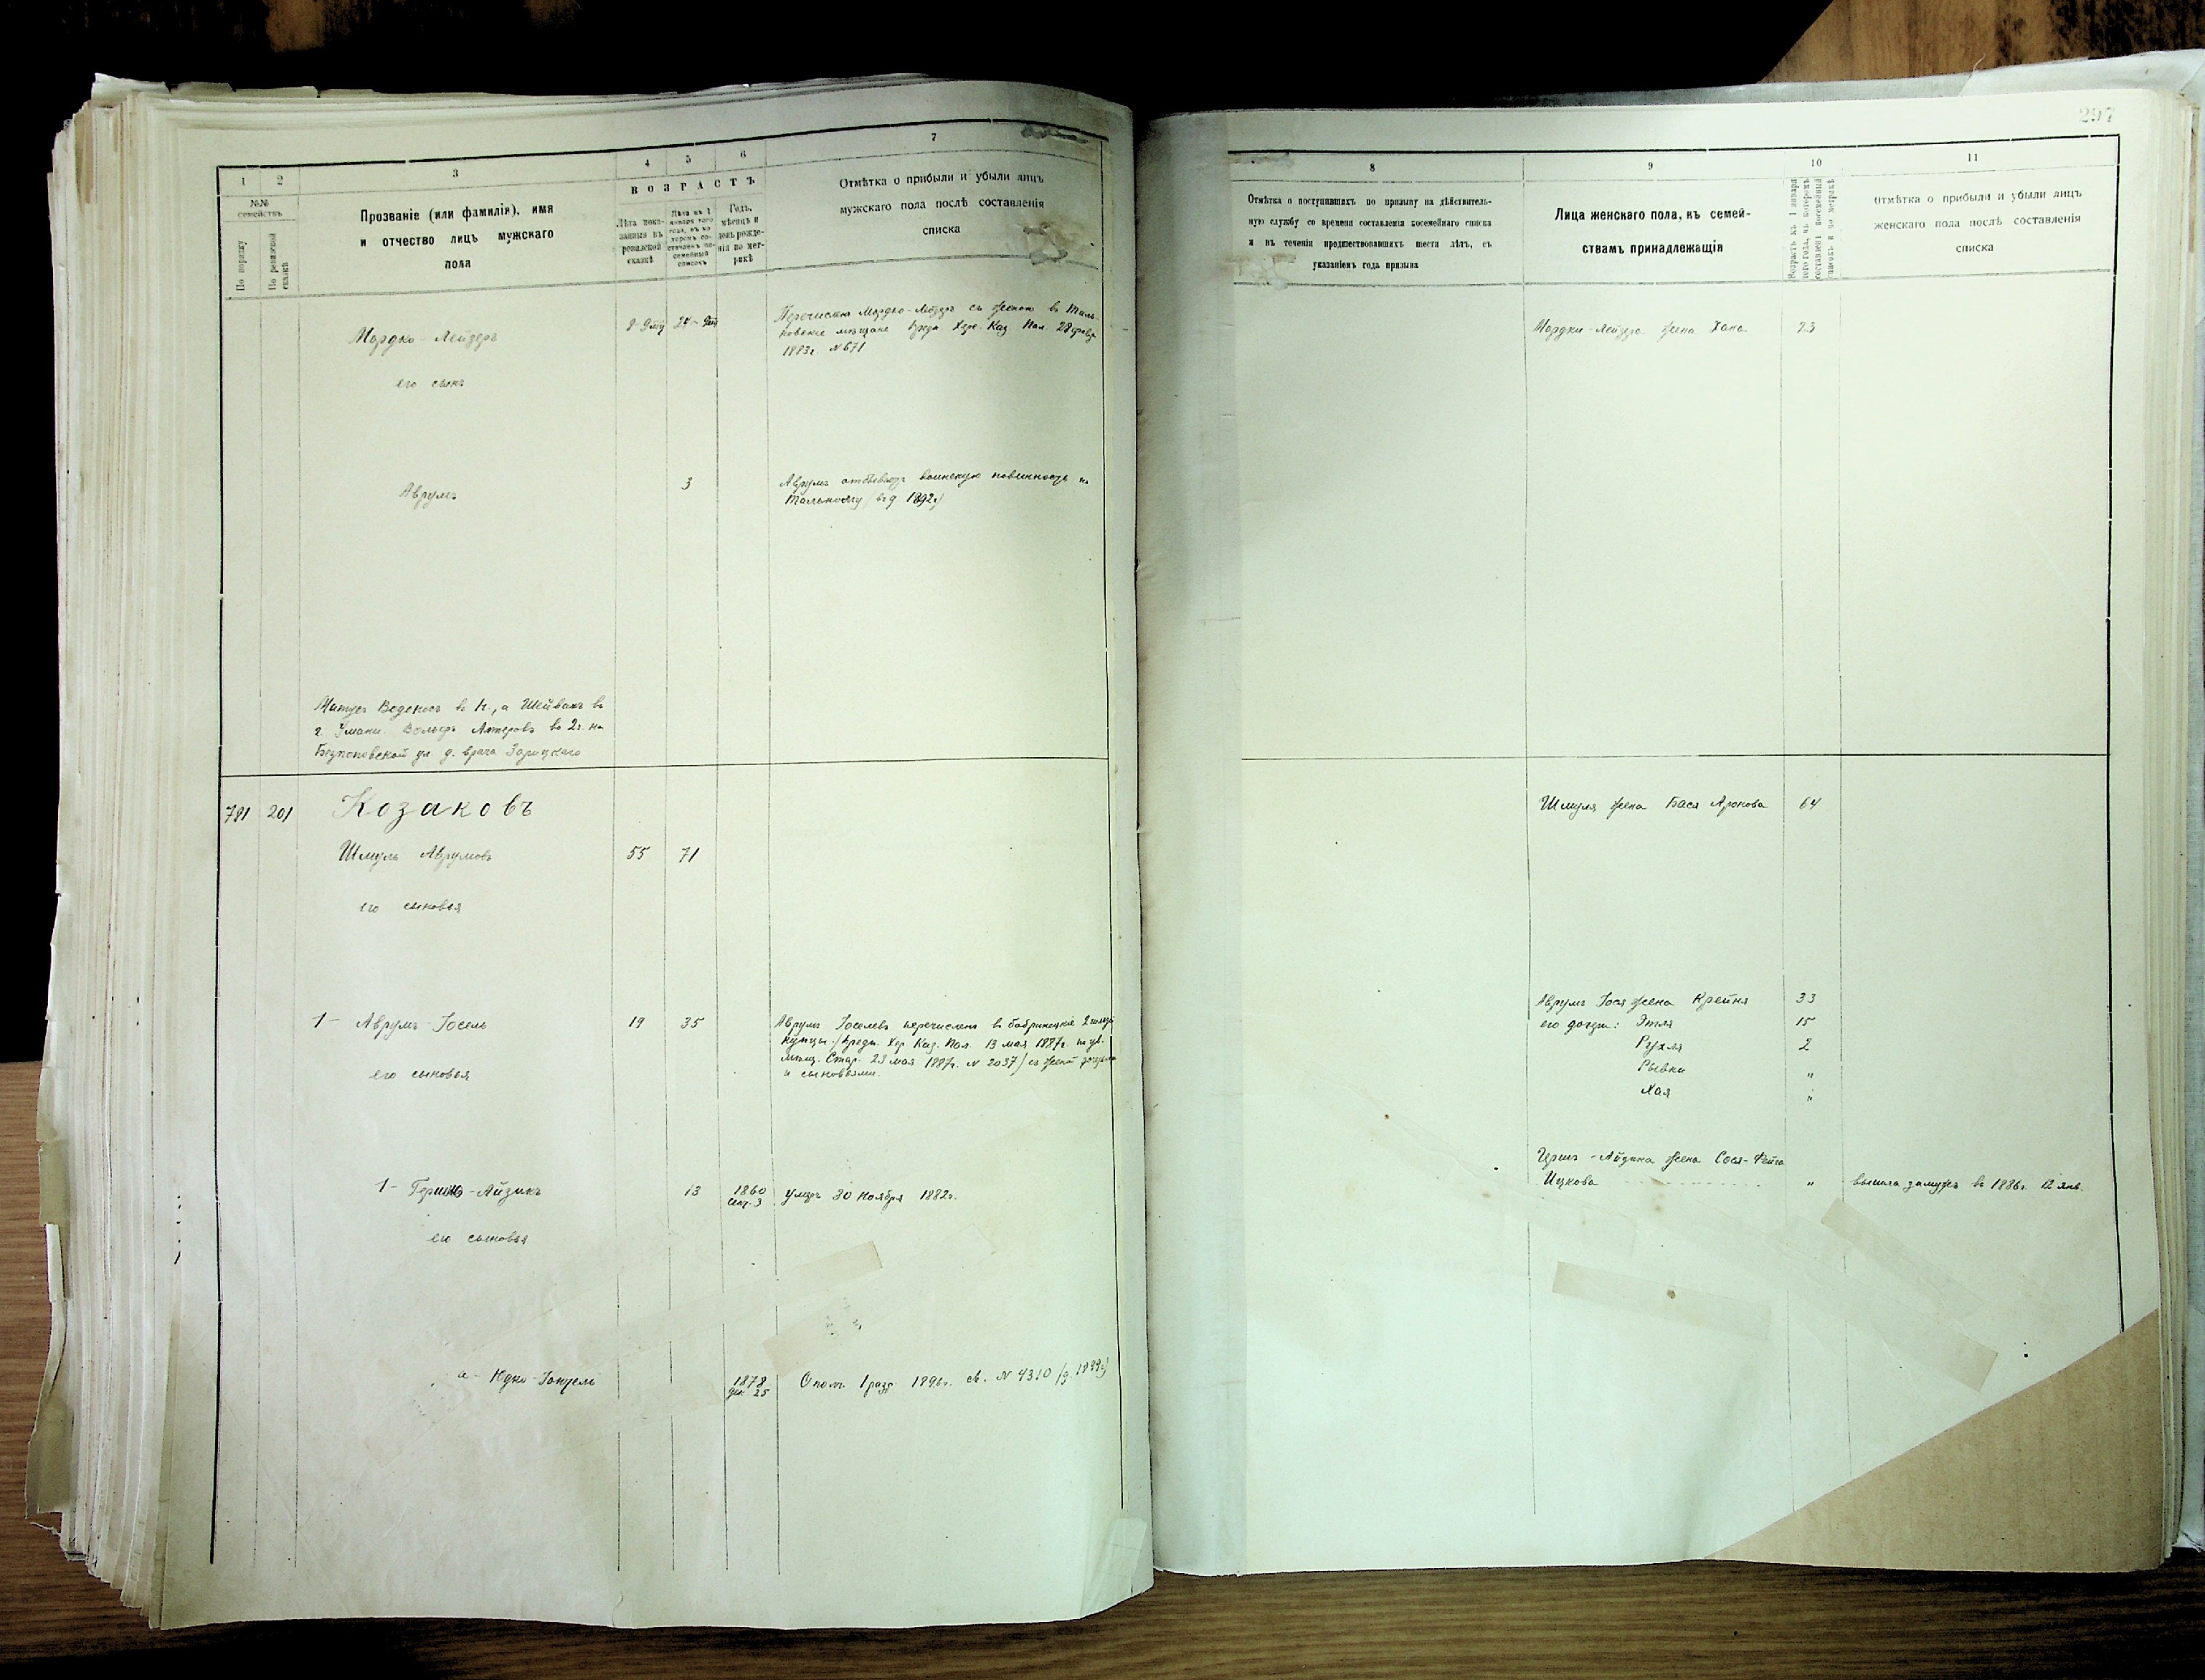 297
1
2
3
4
5
6
7
№№
семействъ
По порядку
По ревизской
сказкѣ
Прозваніе (или фамилія), имя
и отчество лицъ мужскаго
пола
ВОЗРАСТЪ
Лѣта пока-
занныя въ
ревизской
сказкѣ
Лѣта къ 1
января того
года, въ ко
торомъ со-
ставленъ по-
семейный
списокъ
Годъ,
мѣсяцъ и
день рожде-
нія по мет-
рикѣ
Отмѣтка о прибыли и убыли лицъ
мужскаго пола послѣ составленія
списка
Мордко-Лейзеръ
его сынъ
Перечисленъ Мордко-Лейзеръ съ женою въ Таль-
новские мещане
1883г. №671
Аврумъ
3
Аврумъ отбываетъ воинскую повинность по
Тальному
въ 1892г.
а Шейвахъ въ
г. Умани. Вольфъ въ 2г. на
ул. д. врача Зарицкаго
781
201
Козаковъ
Шмуль Аврумовъ
55
71
его сыновья
1- Аврумъ-Іосель
19
35
Аврумъ Іоселевъ перечисленъ въ бобринецкіе 2 гильд.
купцы /предп. Хер. Каз. Пал. 13 мая 1887г.
Стар. 23 мая 1887г. № 2037/ съ женой
и сыновьями.
его сыновья
1- Гершко-Айзикъ
13
1860
сент. 3
умеръ 30 ноября 1882г.
его сыновья
а- Юдко-
1878
дек. 25
Опол. 1 разр. № 4310
8
9
10
11
Отмѣтка о поступившихъ по призыву на дѣйствитель-
ную службу со времени составленія посемейнаго списка
и въ теченіи предшествовавшихъ шести лѣтъ, съ
указаніемъ года призыва
Лица женскаго пола, къ семей-
ствамъ принадлежащія
Возрастъ къ 1 января
того года, въ которомъ
составленъ посемейный
списокъ и по метрикѣ
Отмѣтка о прибыли и убыли лицъ
женскаго пола послѣ составленія
списка
Мордки-Лейзера жена Хана
23
Шмуля жена Бася Аронова
64
Аврумъ Іося жена Крейня
33
его дочери: Этля
15
Рухля
2
Рывка
"
Хая
"
Герша-Айзика жена Сося-Фейга
Ицкова
"
вышла замужъ въ 1886г. 12 янв.